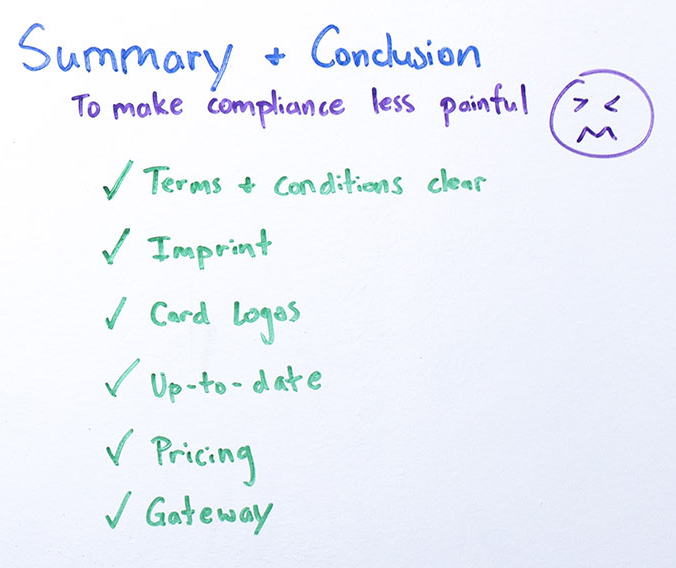 Summary + Conclusion
To make compliance less painful
✓ Terms + Conditions clear
✓ Imprint
✓ Card Logos
✓ Up-to-date
✓ Pricing
✓ Gateway